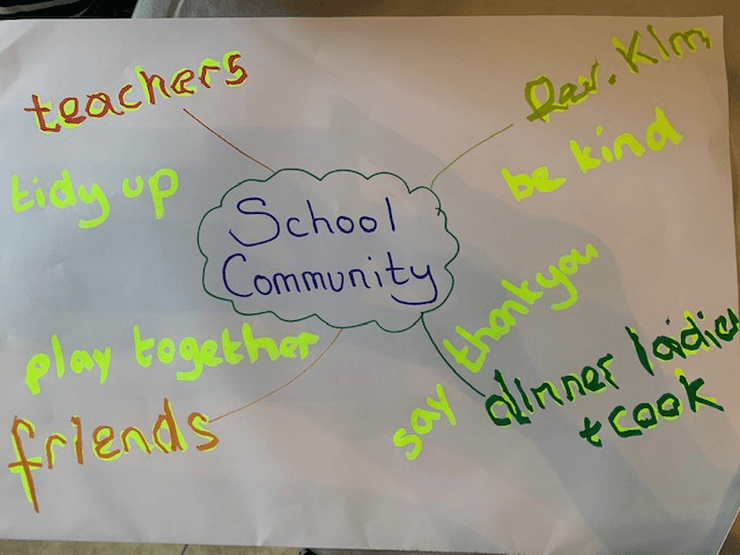 teachers
Rev. Kim
tidy up
be kind
School
Community
play together
say thankyou
friends
dinner ladies
+ cook